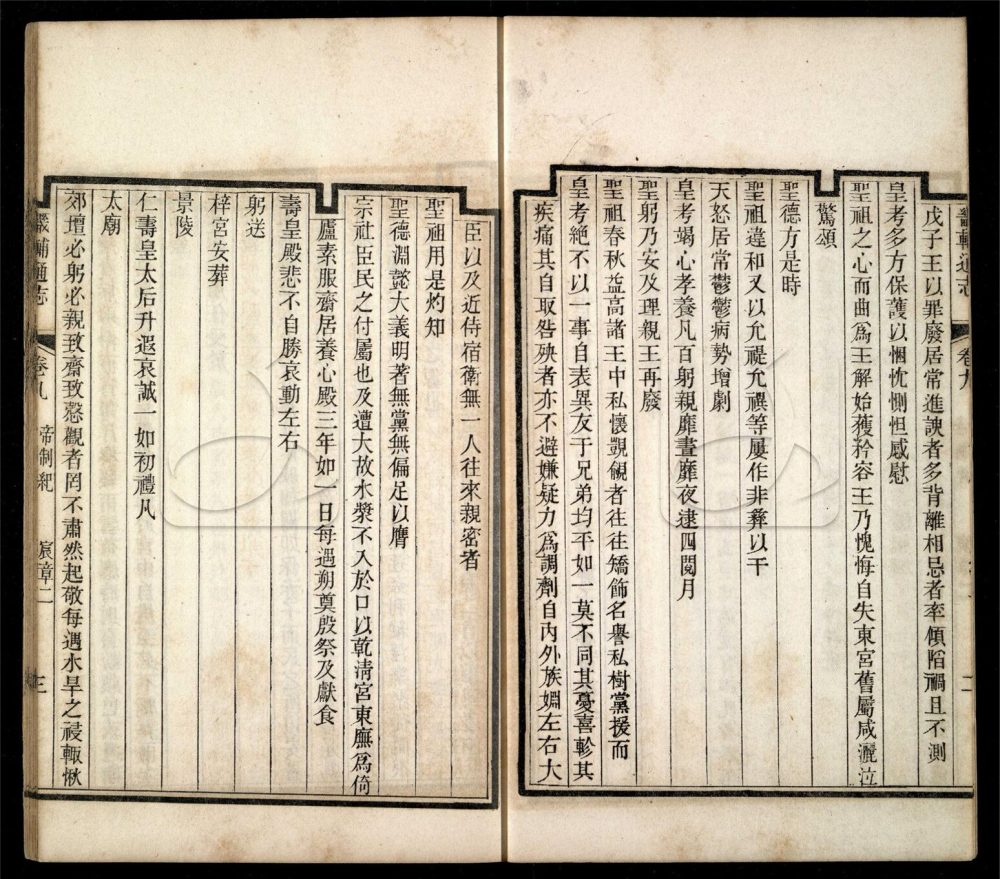 畿輔通志 卷九 二
戊子王以罪廢居常進諛者多背離相忌者率傾陷禍且不測
皇考多方保護以悃忱惻怛感慰
聖祖之心而曲爲王解始獲矜容王乃愧悔自失東宮舊屬咸灑泣
驚頌
聖德方是時
聖祖違和又以允禔允禩等屢作非彝以干
天怒居常鬱鬱病勢增劇
皇考竭心孝養凡百躬親靡晝靡夜逮四閱月
聖躬乃安及理親王再廢
聖祖春秋益高諸王中私懷覬覦者往往矯飾名譽私樹黨援而
皇考絶不以一事自表異友于兄弟均平如一莫不同其憂喜軫其
疾痛其自取咎殃者亦不避嫌疑力爲調劑自內外族婣左右大
臣以及近侍宿衛無一人往來親密者
聖祖用是灼知
聖德淵懿大義明著無黨無偏足以膺
宗社臣民之付屬也及遭大故水漿不入於口以乾淸宮東廡爲倚
廬素服齋居養心殿三年如一日每遇朔奠殷祭及獻食
壽皇殿悲不自勝哀動左右
躬送
梓宮安葬
景陵
仁壽皇太后升遐哀誠一如初禮凡
太廟
郊壇必躬必親致齋致慤觀者罔不肅然起敬每遇水旱之祲輒愀
畿輔通志 卷九 帝制紀 宸章二 三